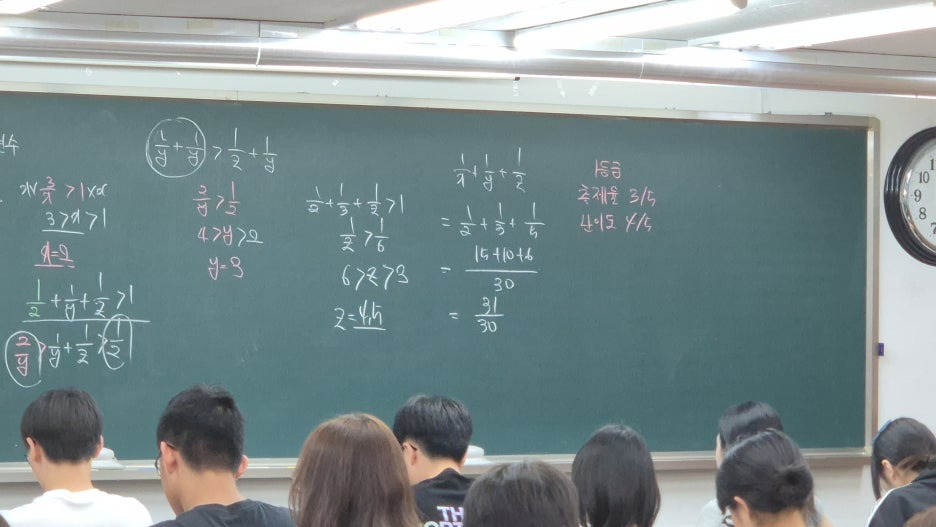 3/x > 1
3 > x > 1
x = 2
1/2 + 1/y + 1/z > 1
2/y > 1/y + 1/z > 1/2
1/y + 1/y > 1/z + 1/y
2/y > 1/2
4 > y > 2
y = 3
1/2 + 1/3 + 1/z > 1
1/z > 1/6
6 > z > 3
z = 4, 5
1/x + 1/y + 1/z
= 1/2 + 1/3 + 1/5
= 15+10+6 / 30
= 31/30
1등급
출제율 3/5
난이도 4/5
10
9
8
7
TH